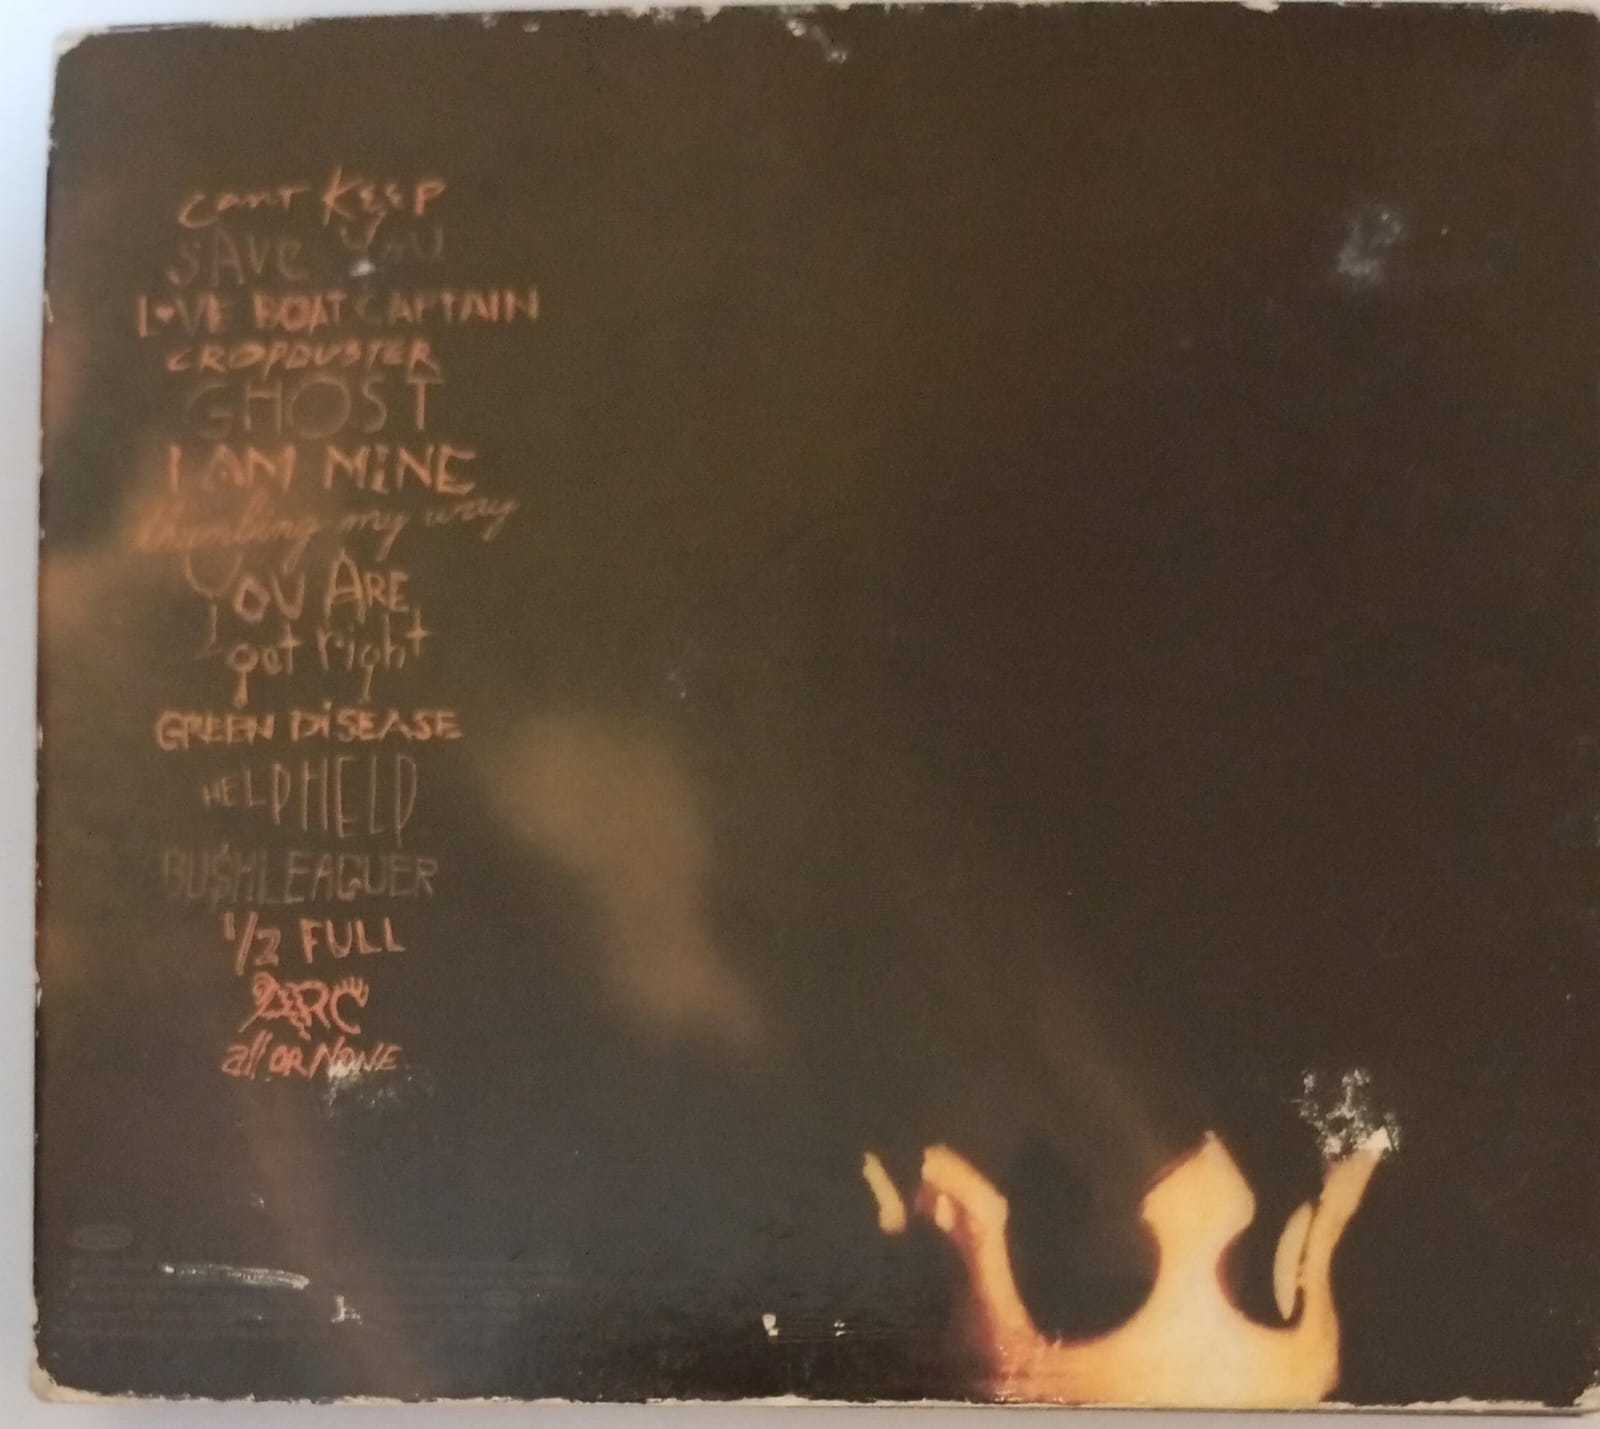 cant Keep
SAVE You
LOVE BOAT CAPTAIN
CROPDUSTER
GHOST
I AM MINE
thumbing my way
YOU ARE
get right
GREEN DISEASE
HELPHELP
BU$HLEAGUER
1/2 FULL
ARC
all OR NONE